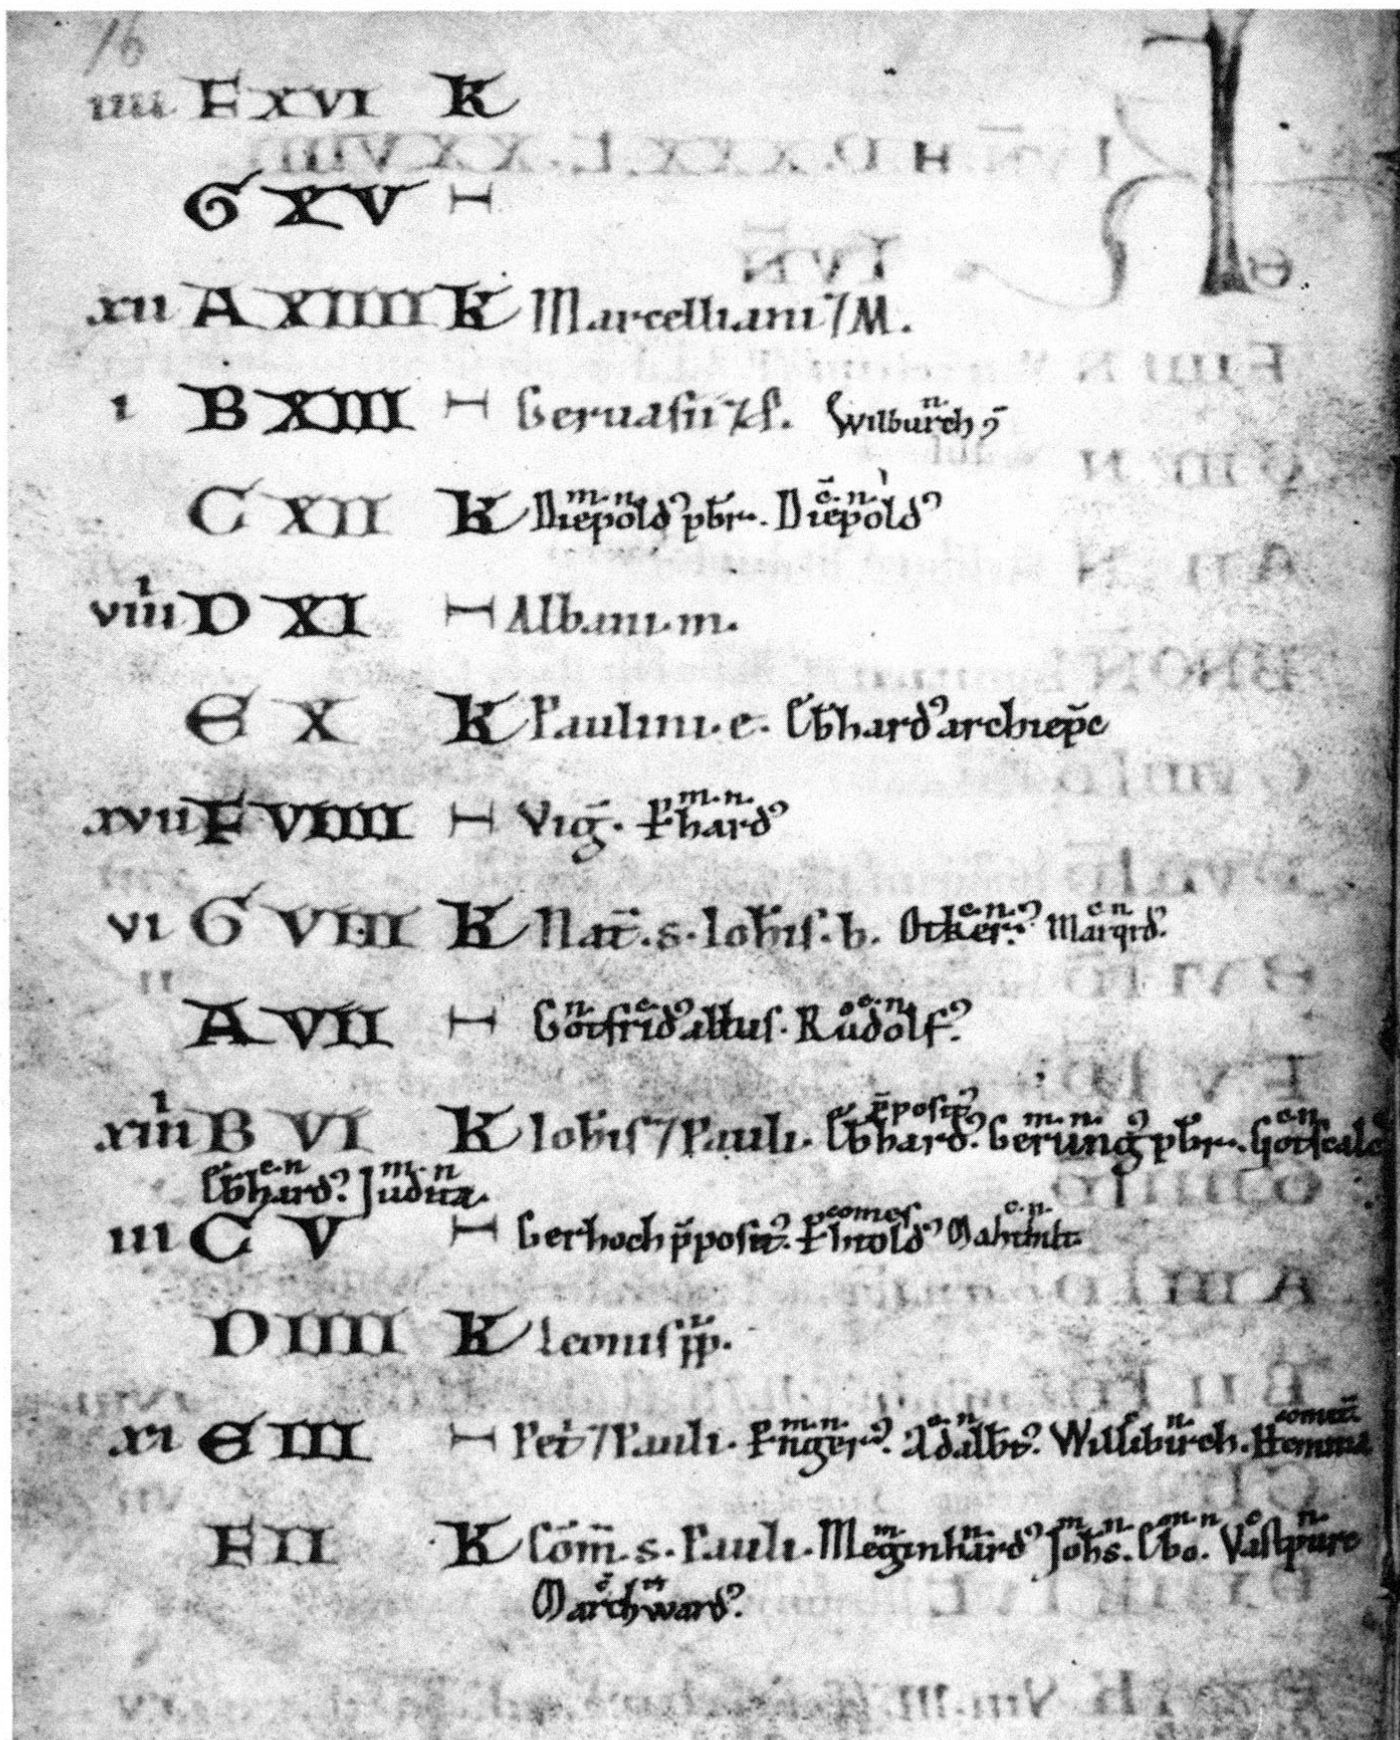 16
iiii F XVI K
G XV H
xii A XIIII K Marcelliani 7 M.
i B XIII H Geruasii 7 P. Wilburch ꝯ n.
C XII K Diepold᾿ pbr. m. n. Diepold᾿ c. n.
viiii D XI H Albani. m.
E X K Paulini. e. Ebhard᾿ archiep̄c
xvii F VIIII H Vig̅. Erhard᾿ m. n.
vi G VIII K Nat̅. s. Iohis. b. Otker᾿ c. n. Marqrd᾿ c n
A VII H Gotfrid᾿ abbas. Rudolf᾿ c. n.
xiiii B VI K Iohis 7 Pauli. Ebhard᾿ p̄posit᾿ Gerung᾿ pbr. m. n. Gotscalc᾿ c n
Ebhard᾿ c. n Judita m. n
iii C V H Gerhoch p̄posit᾿. comes Mahthilt c. n.
D IIII K Leonis pp̄.
xi E III H Pet 7 Pauli. m. n. Adalbt᾿ c. n Willibirch. n. Hemma comit̅
F II K Com̅. s. Pauli. Meginhard᾿ m. n. Johs. m. n. Ebo. m n
Marchward᾿